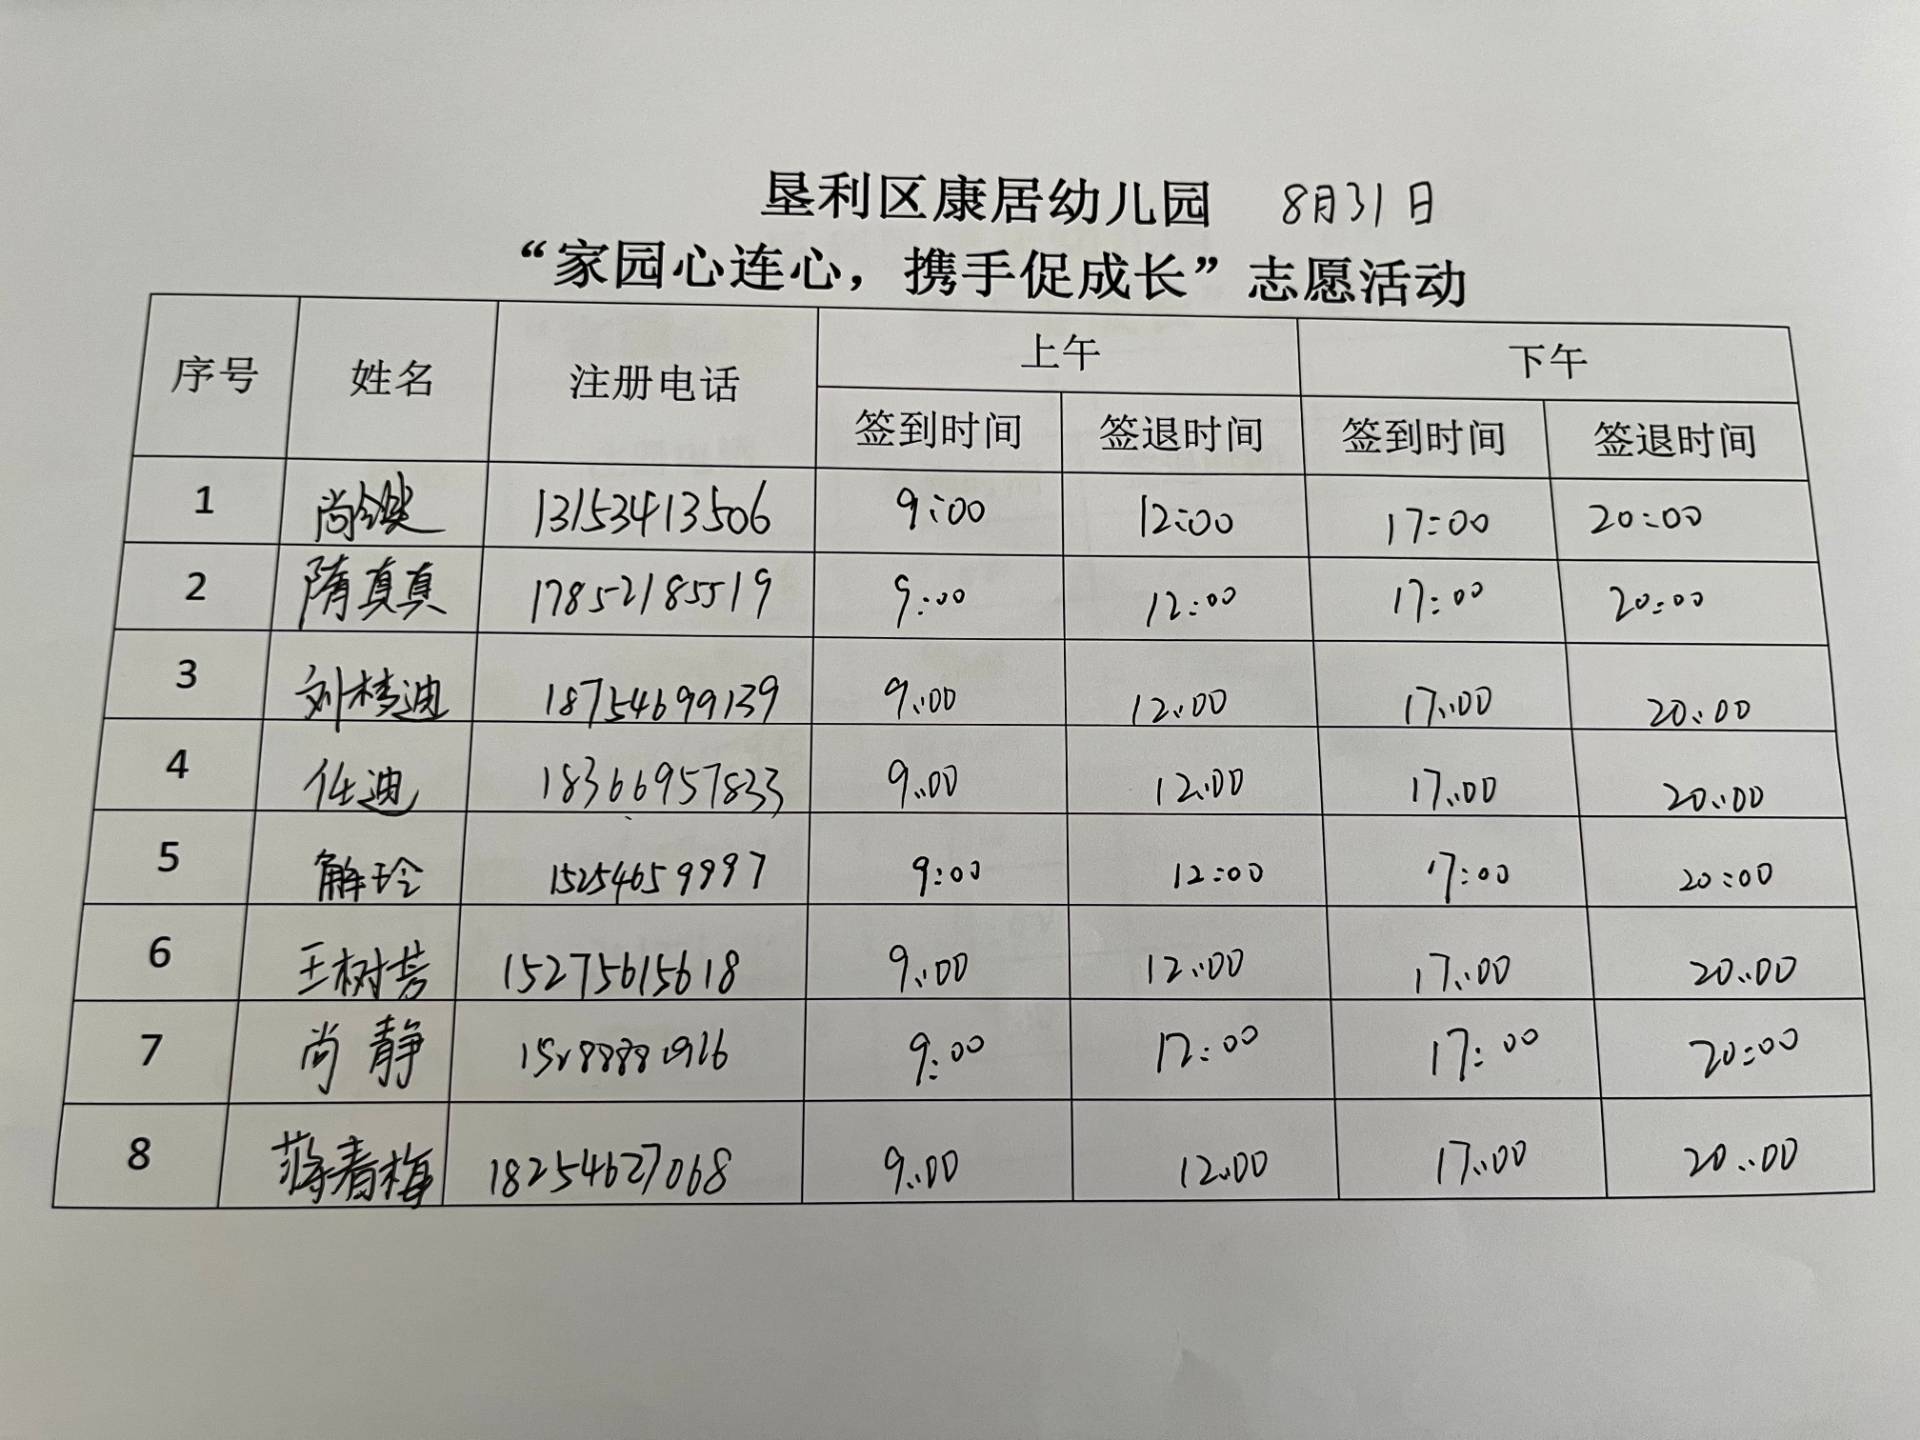 垦利区康居幼儿园 8月31日
“家园心连心，携手促成长”志愿活动
序号 姓名 注册电话 上午 下午
签到时间 签退时间 签到时间 签退时间
1 13153413506 9:00 12:00 17:00 20:00
2 隋真真 17852185519 9:00 12:00 17:00 20:00
3 刘梦迪 18754699139 9:00 12:00 17:00 20:00
4 任迪 18366957833 9:00 12:00 17:00 20:00
5 解玲 15254659997 9:00 12:00 17:00 20:00
6 王树芳 15275615618 9:00 12:00 17:00 20:00
7 尚静 9:00 12:00 17:00 20:00
8 蒋春梅 18254627068 9:00 12:00 17:00 20:00